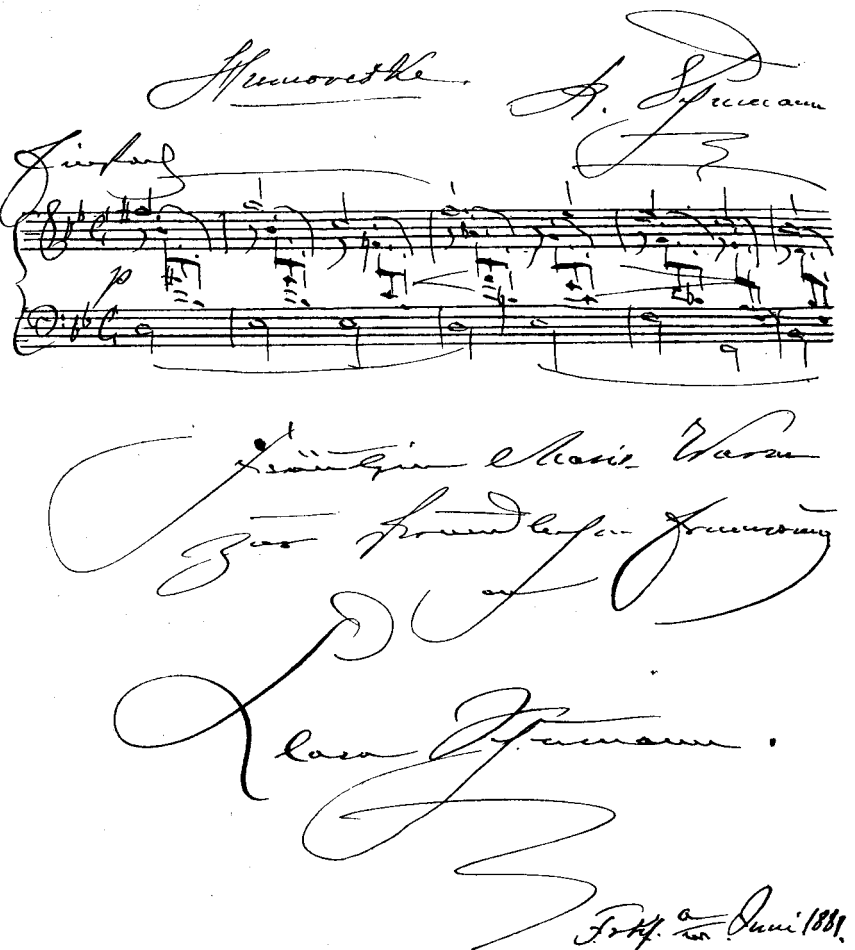 Humoreske. R. Schumann
Einfach
p
Fräulein Marie Wurm
zur freundlichen Erinnerung
an
Clara Schumann.
Frkf. a/M. Juni 1881.